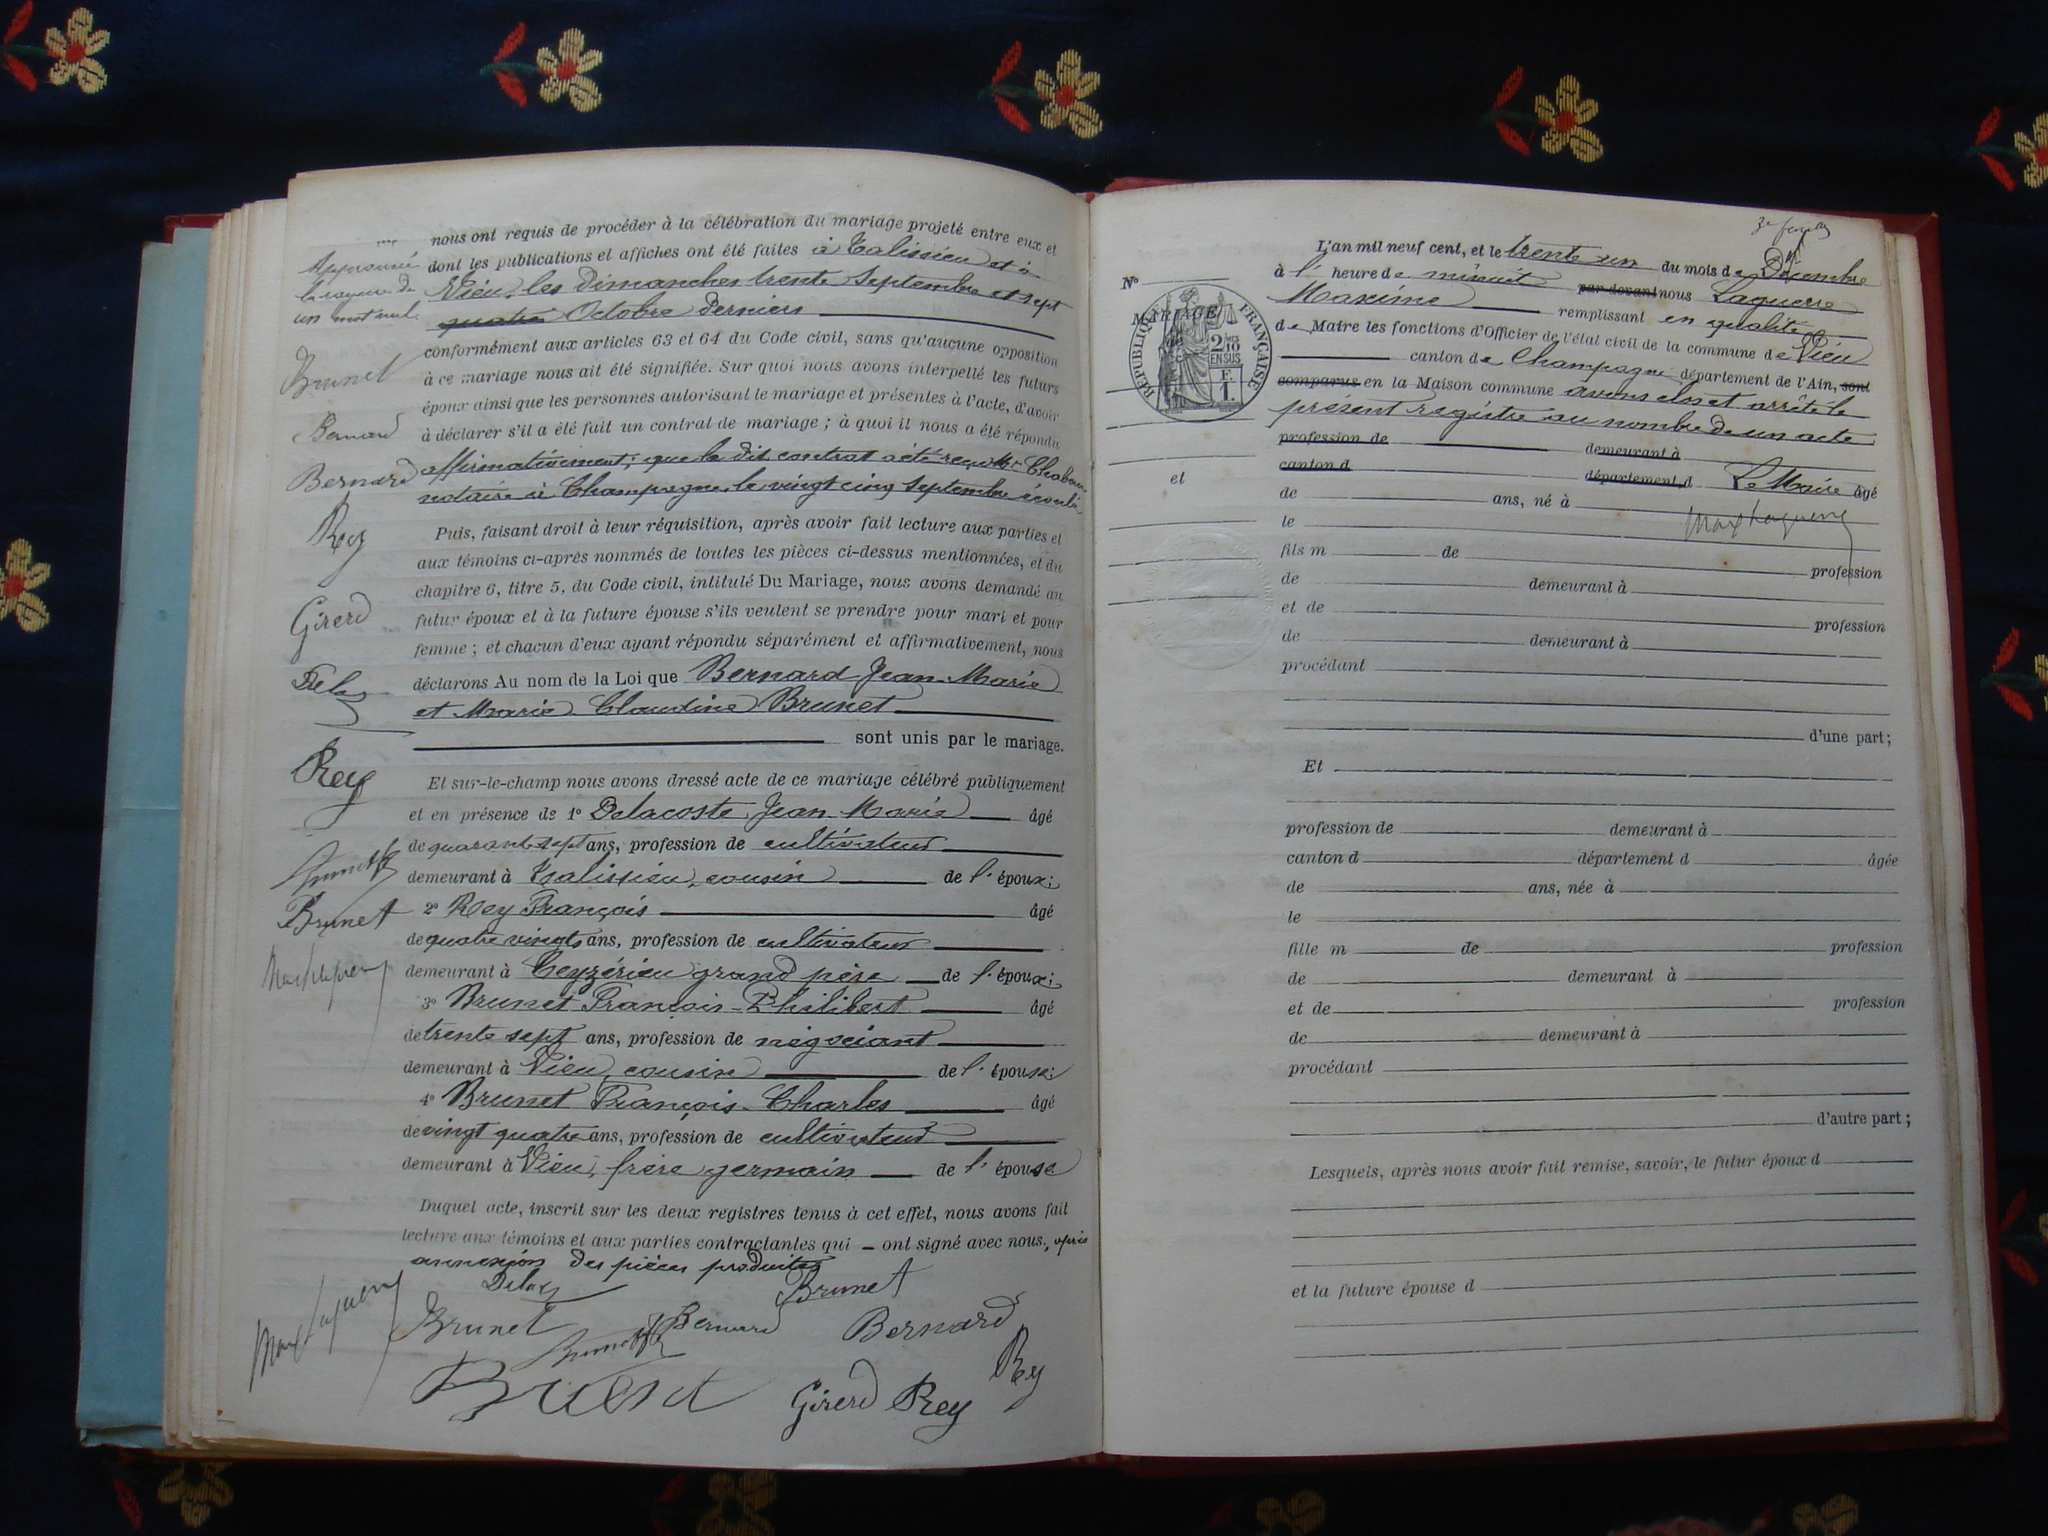 Approuvé
la rayure de
un mot nul.
Brunet
Bernard
Bernard
Rey
Girerd
Rey
Brunet
nous ont requis de procéder à la célébration du mariage projeté entre eux et
dont les publications et affiches ont été faites à Talissieu et à
Vieu, les Dimanches trente Septembre et sept
quatre Octobre derniers
conformément aux articles 63 et 64 du Code civil, sans qu'aucune opposition
à ce mariage nous ait été signifiée. Sur quoi nous avons interpellé les futurs
époux ainsi que les personnes autorisant le mariage et présentes à l'acte, d'avoir
à déclarer s'il a été fait un contrat de mariage ; à quoi il nous a été répondu
affirmativement ; que le dit contrat a été reçu Me
notaire à Champagne, le vingt cinq Septembre écoulé.
Puis, faisant droit à leur réquisition, après avoir fait lecture aux parties et
aux témoins ci-après nommés de toutes les pièces ci-dessus mentionnées, et du
chapitre 6, titre 5, du Code civil, intitulé Du Mariage, nous avons demandé au
futur époux et à la future épouse s'ils veulent se prendre pour mari et pour
femme ; et chacun d'eux ayant répondu séparément et affirmativement, nous
déclarons Au nom de la Loi que Bernard Jean-Marie
et Marie Claudine Brunet
sont unis par le mariage.
Et sur-le-champ nous avons dressé acte de ce mariage célébré publiquement
et en présence de 1º Delacoste Jean Marie âgé
de quarante sept ans, profession de cultivateur
demeurant à Talissieu, cousin de l'époux;
2º Rey François âgé
de quatre vingts ans, profession de cultivateur
demeurant à Ceyzérieu grand père de l'époux;
3º Brunet François-Philibert âgé
de trente sept ans, profession de négociant
demeurant à Vieu, cousin de l'épouse;
4º Brunet François-Charles âgé
de vingt quatre ans, profession de cultivateur
demeurant à Vieu, frère germain de l'épouse
Duquel acte, inscrit sur les deux registres tenus à cet effet, nous avons fait
lecture aux témoins et aux parties contractantes qui – ont signé avec nous, après
annexion des pièces produites
Brunet
Max Laguerre
Brunet
Bernard
Bernard
Rey
Brunet
Girerd Rey
L'an mil neuf cent, et le trente un du mois de Décembre
à l' heure de minuit par devant nous Laguerre
Maxime remplissant en qualité
de Maire les fonctions d'Officier de l'état civil de la commune de Vieu
canton de Champagne, département de l'Ain, sont
comparus en la Maison commune avons clos et arrêté le
présent registre au nombre de un acte
profession de demeurant à
canton d département d Le Maire âgé
de ans, né à
Max Laguerre
le
fils m de
profession
de demeurant à
et de
profession
de demeurant à
procédant
d'une part;
Et
profession de demeurant à
canton d département d âgée
de ans, née à
le
fille m de profession
de demeurant à
et de profession
de demeurant à
procédant
d'autre part;
Lesquels, après nous avoir fait remise, savoir, le futur époux d
et la future épouse d
Nº
MARIAGE
RÉPUBLIQUE FRANÇAISE
2/10
EN SUS
F.
1.
et